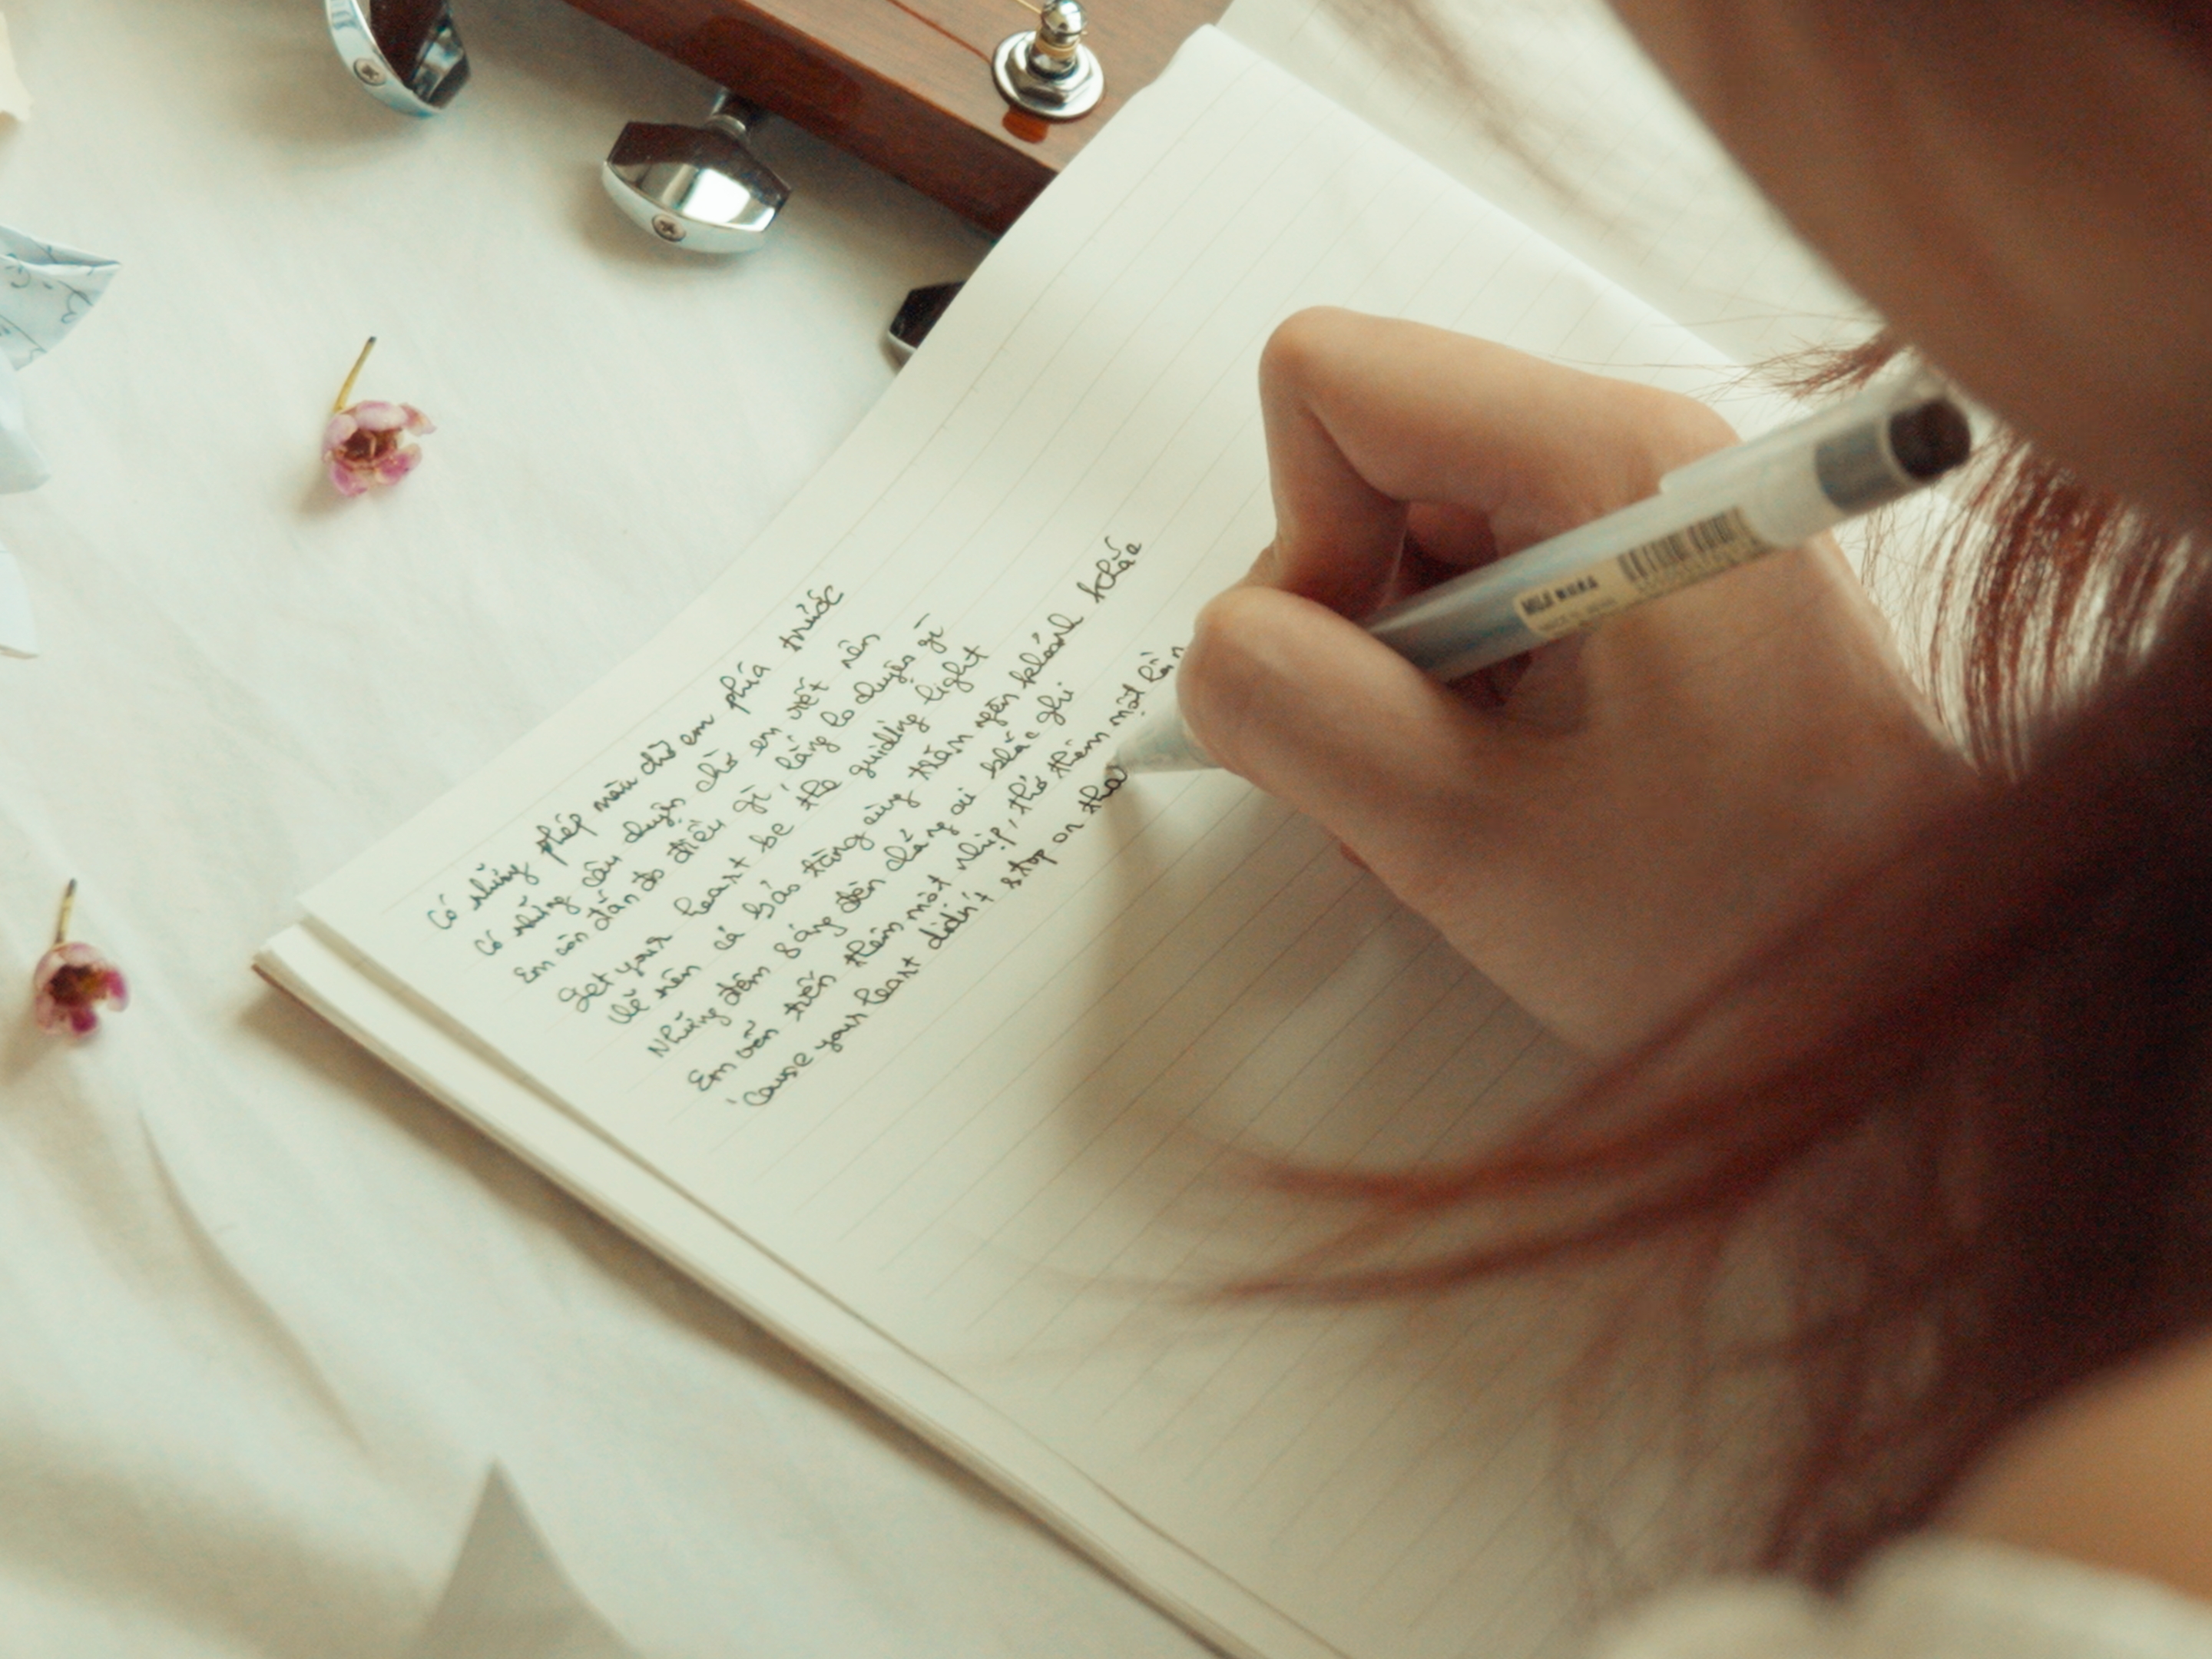 Có những phép màu chờ em phía trước
Có những câu chuyện chờ em viết nên
Em còn đắn đo điều gì, lắng lo chuyện gì
Let your heart be the guiding light
Vẽ nên cả bão tông cùng trăm ngàn khoảnh khắc
Những đêm sáng đèn chẳng ai khắc ghi
Em vẫn tiến thêm một nhịp, thở thêm một lần
'Cause your heart didn't stop on tha
MUJI